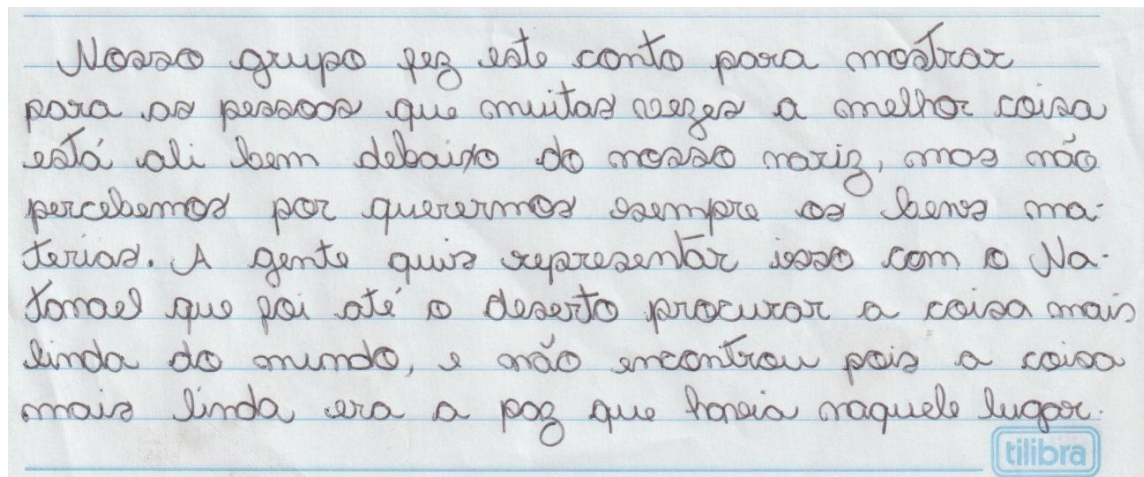 Nosso grupo fez este conto para mostrar
para as pessoas que muitas vezes a melhor coisa
está ali bem debaixo do nosso nariz, mas não
percebemos por querermos sempre os bens ma-
terias. A gente quis representar isso com o Na-
tanael que foi até o deserto procurar a coisa mais
linda do mundo, e não encontrou pois a coisa
mais linda era a paz que havia naquele lugar.
tilibra